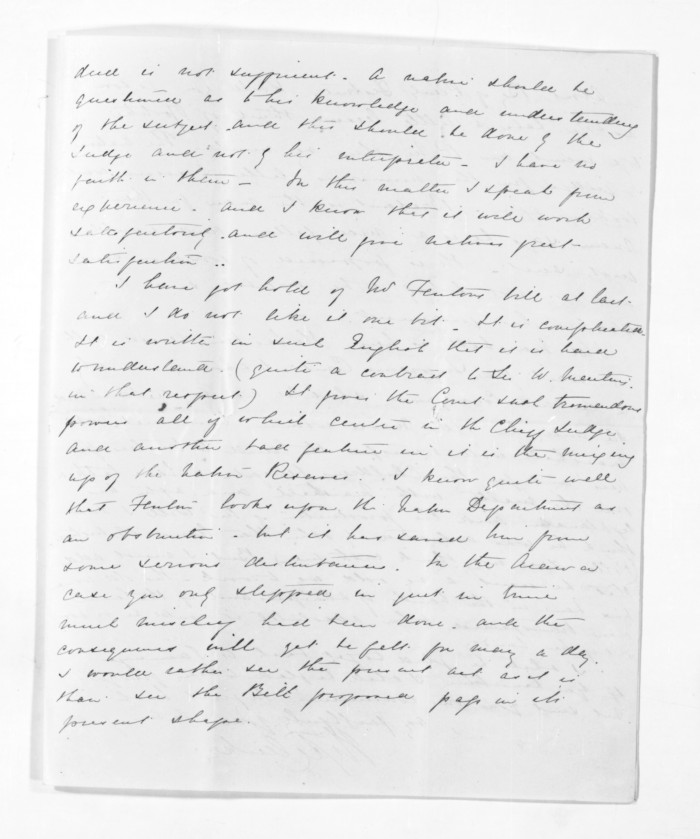 deed is not sufficient. A native should be
questioned as to his knowledge and understanding
of the subject and this should be done by the
Judge and not by his interpreter - I have no
faith in them - In this matter I speak from
experience. and I know that it will work
satisfactorily and will give natives great
satisfaction ..
I have got hold of Mr Fentons bill at last
and I do not like it one bit - It is complicated
It is written in such English that it is hard
to understand. (quite a contrast to Sir W. Martins
in that respect) It gives the Court such tremendous
powers all of which centre in the Chief Judge
and another bad feature in it is the mixing
up of the Native Reserves. I know quite well
that Fenton looks upon the Native Department as
an obstruction - but it has saved him from
some serious disturbances. In the Arawa
case you only stepped in just in time
much mischief had been done. and the
consequences will yet be felt for many a day.
I would rather see the present act as it is
than see the Bill proposed pass in its
present shape.